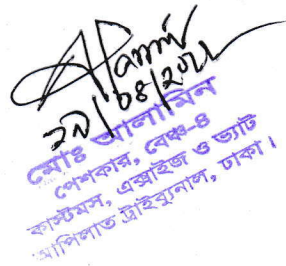 ২৯/০৪/২০২২
মোঃ আলামিন
পেশকার, বেঞ্চ-৪
কাস্টমস, এক্সাইজ ও ভ্যাট
আপিলাত ট্রাইব্যুনাল, ঢাকা।